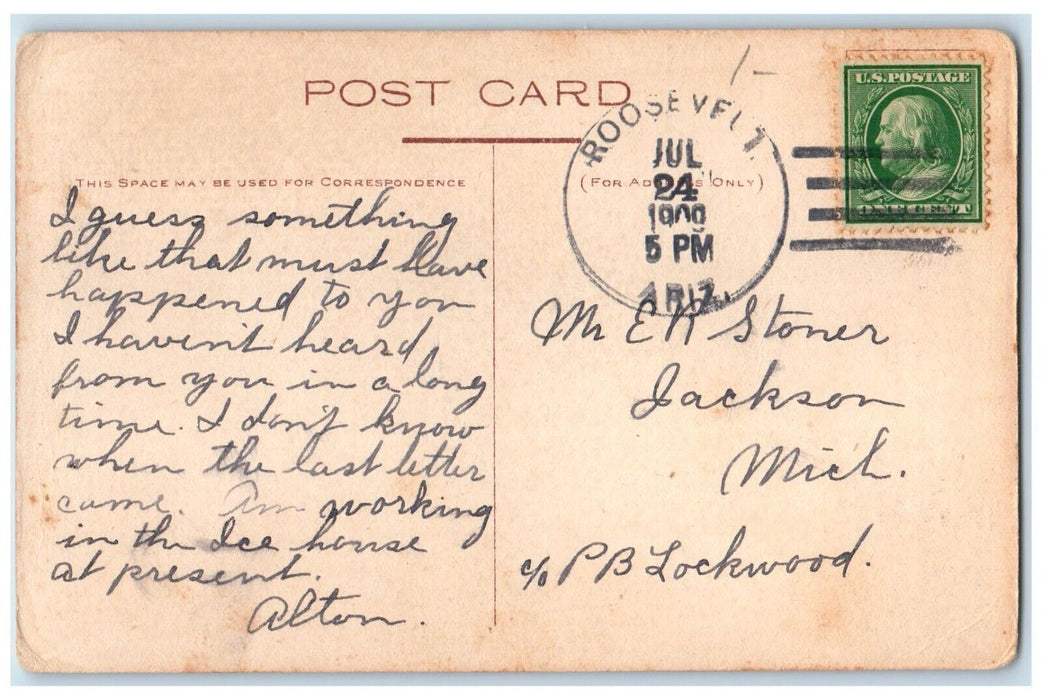 POST CARD
THIS SPACE MAY BE USED FOR CORRESPONDENCE
(FOR ADDRESS ONLY)
U.S. POSTAGE
ONE CENT
1-
ROOSEVELT
JUL
24
1909
5 PM
ARIZ.
I guess something
like that must have
happened to you
I haven't heard
from you in a long
time. I don't know
when the last letter
came. Am working
in the Ice house
at present.
Alton.
Mr E R Stoner
Jackson
Mich.
c/o P B Lockwood.